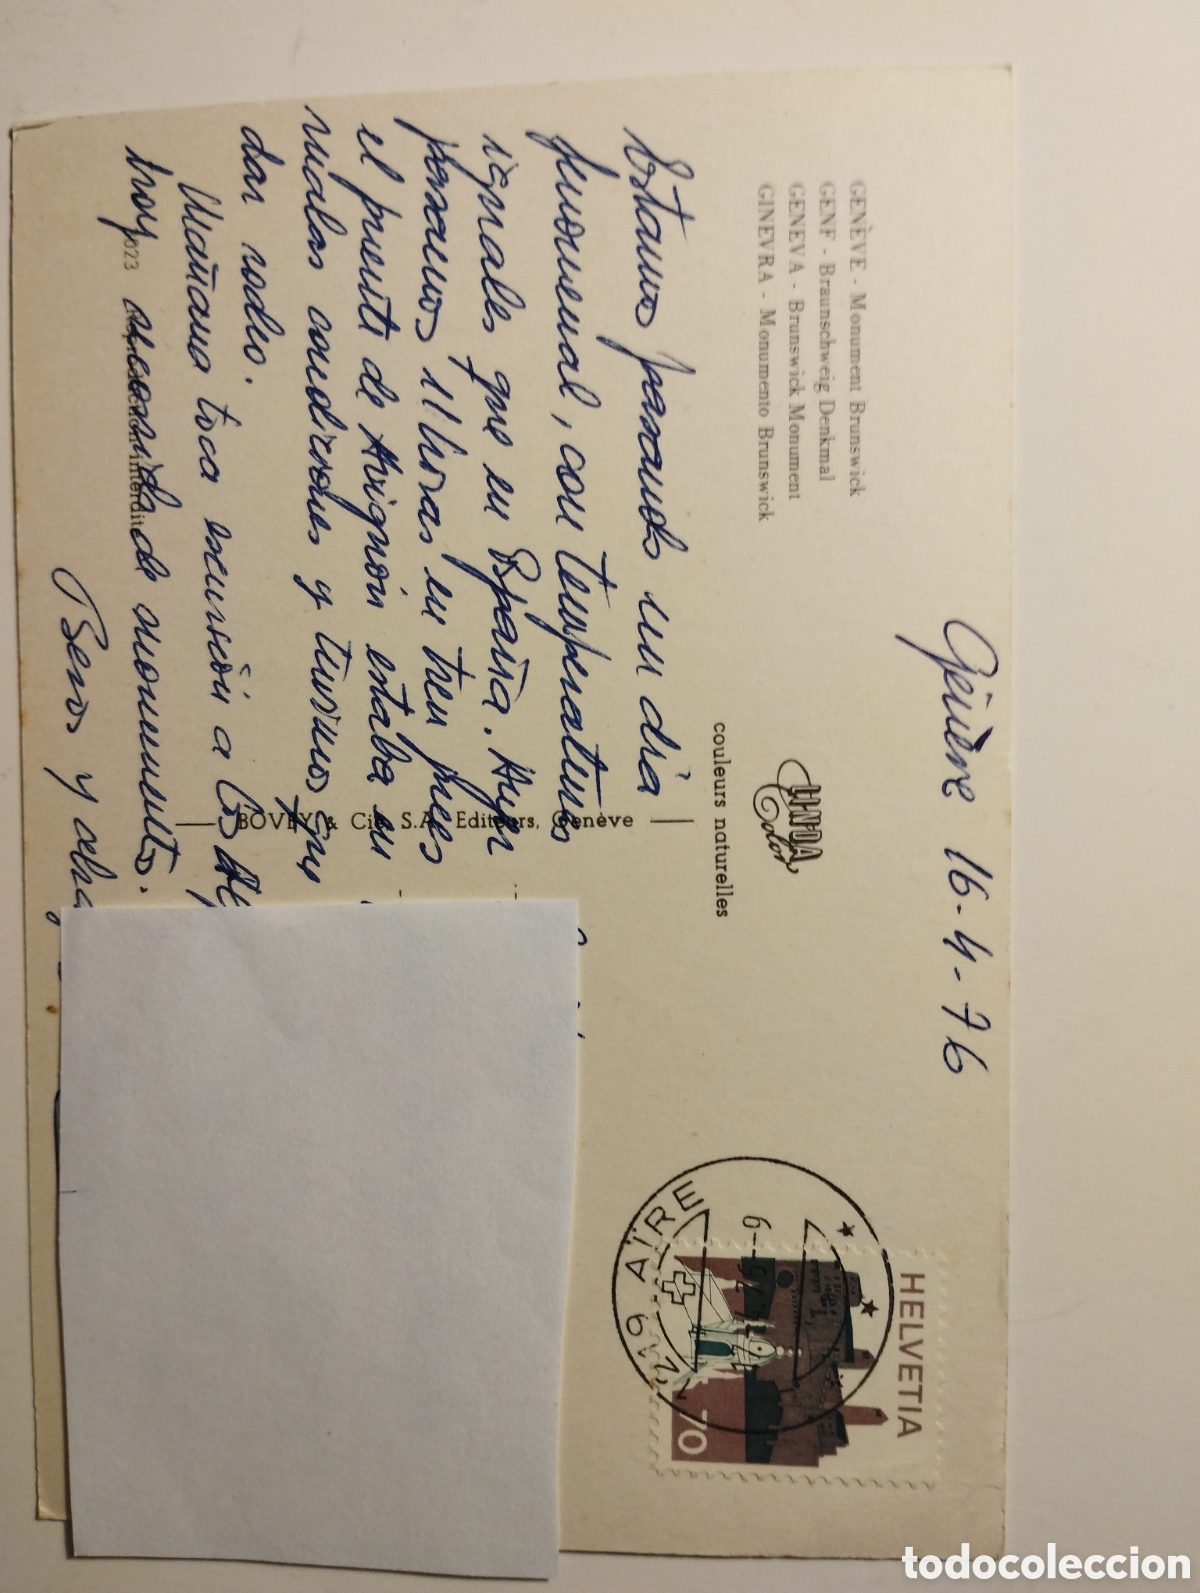 Genève 16-4-76
GENÈVE - Monument Brunswick
GENF - Braunschweig Denkmal
GENEVA - Brunswick Monument
GINEVRA - Monumento Brunswick
LINDA
Color
couleurs naturelles
BOVEY & Cie, S.A. Editeurs, Genève
Estamos pasando un dia
fenomenal, con temperaturas
iguales que en España. Ayer
pasamos 11 horas en tren pues
el puente de Avignón estaba en
malas condiciones y tuvimos que
dar rodeo.
Mañana toca excursión a los
hoy recorrido de monumentos.
Besos y
023 Reproduction interdite
HELVETIA
70
AÏRE
1219
todocoleccion